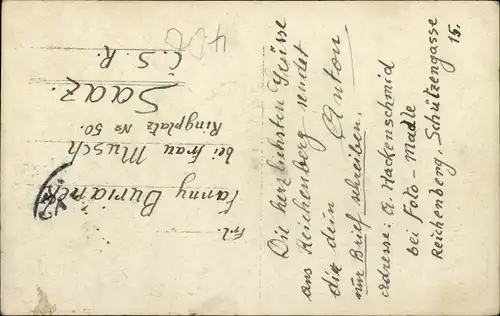 Die herzlichsten Grüsse
aus Reichenberg sendet
dir dein Anton
nur Brief schreiben.
Adresse: A. Hackenschmid
bei Foto-Madle
Reichenberg. Schützengasse
15.
Frl.
Fanny Burianek
bei Frau Musch
Ringplatz No 50.
Saaz.
Č.S.R.
400